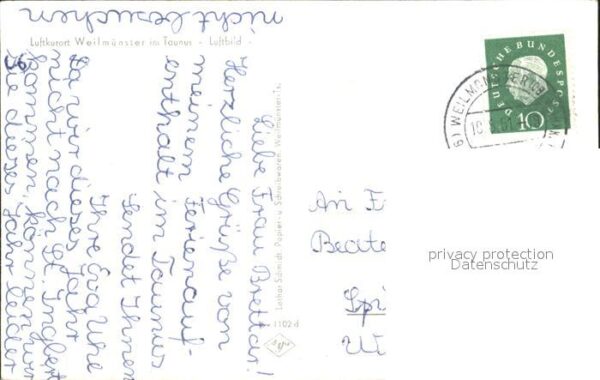 Luftkurort Weilmünster im Taunus - Luftbild -
Liebe Frau Brettar!
Herzliche Grüße von
meinem Ferienauf-
enthalt im Taunus
sendet Ihnen
Ihre Eva Uhe
Da wir dieses Jahr
nicht nach St. Ingbert
kommen, können wir
Sie dieses Jahr leider
nicht besuchen
Lothar Schmidt, Papier- u. Schreibwaren, Weilmünster i. Ts.
1102 d
An F
Beate
DEUTSCHE BUNDESPOST
10
privacy protection
Datenschutz